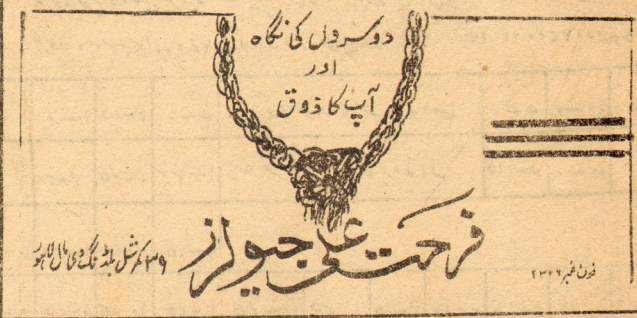 دوسروں کی نگاہ
اور
آپ کا ذوق
فرحت علی جیولرز
۳۹ کمرشل بلڈنگ دی مال لاہور
فون نمبر ۲۳۶۶